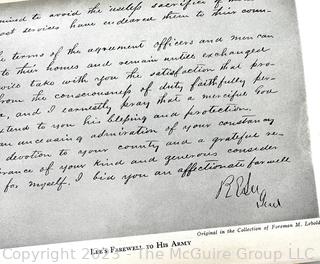 mined to avoid the useless sacrifice of
past services have endeared them to their coun-
the terms of the agreement officers and men can
to their homes and remain until exchanged
will take with you the satisfaction that pro-
from the consciousness of duty faithfully per-
and I earnestly pray that a merciful God
extend to you his blessing and protection.
an unceasing admiration of your constancy
devotion to your country and a grateful re-
rance of your kind and generous consider-
for myself. I bid you an affectionate farewell
R E Lee
Genl
Original in the Collection of Foreman M. Lebold
LEE'S FAREWELL TO HIS ARMY
Copyright 2023 - The McGuire Group LLC